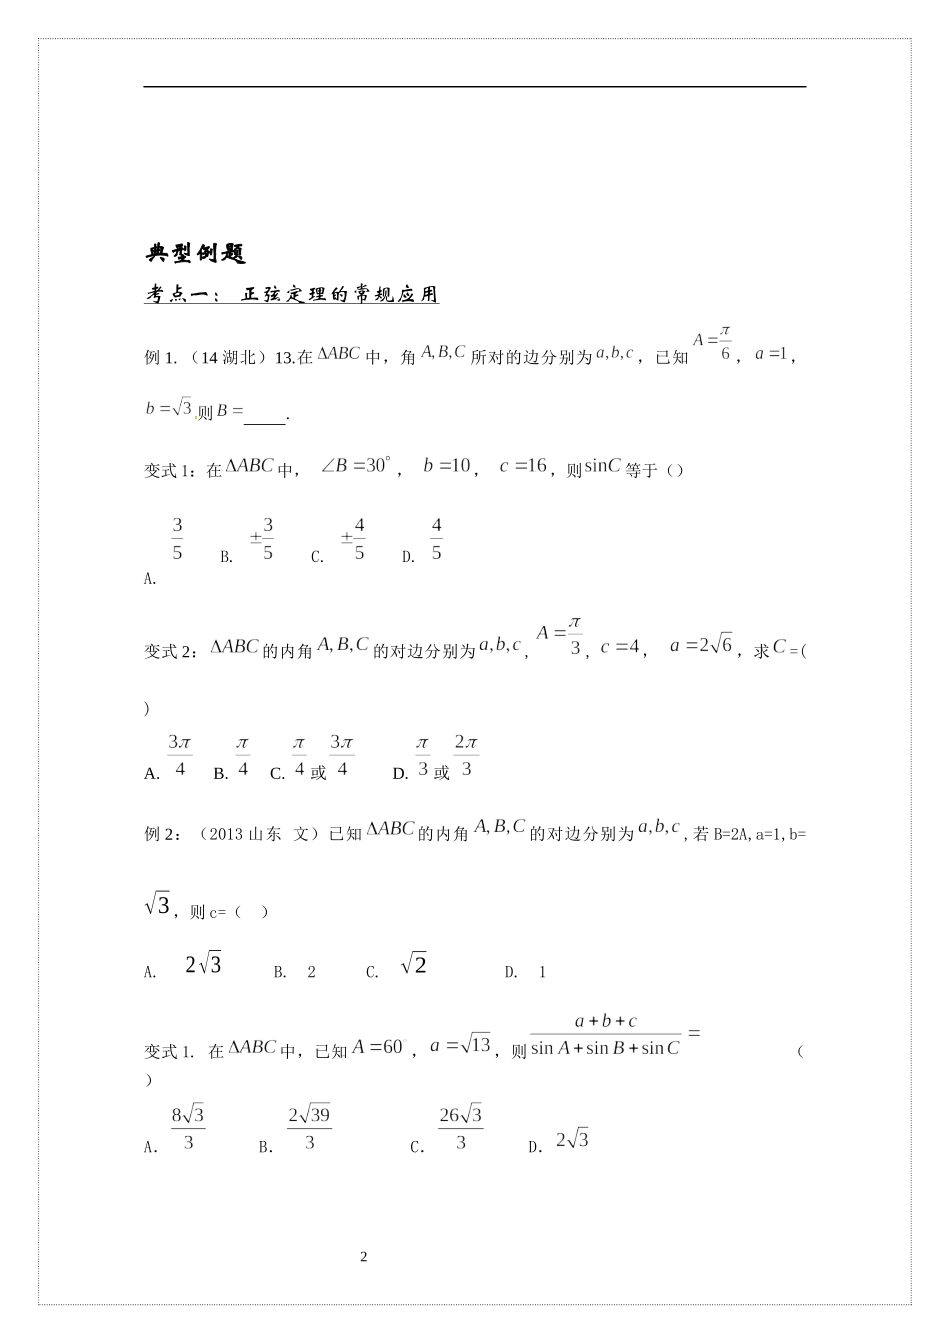 典型例题
考点一： 正弦定理的常规应用
例 1.（14 湖北）13.在 ΔABC 中，角 A,B,C 所对的边分别为 a,b,c，已知 A=π/6，a=1，
b=√3 则 B=____.
变式 1：在 ΔABC 中， ∠B=30°， b=10， c=16，则 sinC 等于（）
3/5 B. ±3/5 C. ±4/5 D. 4/5
A.
变式 2： ΔABC 的内角 A,B,C 的对边分别为 a,b,c, A=π/3, c=4， a=2√6，求 C =(
)
A. 3π/4 B. π/4 C. π/4 或 3π/4 D. π/3 或 2π/3
例 2：（2013 山东 文）已知 ΔABC 的内角 A,B,C 的对边分别为 a,b,c ,若 B=2A,a=1,b=
√3，则 c=（ ）
A. 2√3 B. 2 C. √2 D. 1
变式 1. 在 ΔABC 中，已知 A=60°，a=√13，则 (a+b+c)/(sin A+sin B+sin C) = （
）
A．8√3/3 B．2√39/3 C．26√3/3 D．2√3
2